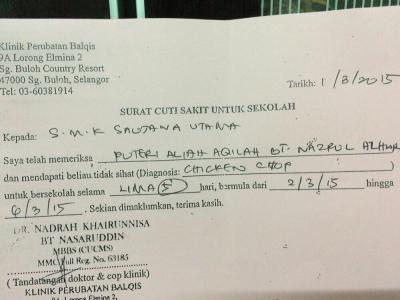 Klinik Perubatan Balqis
9A Lorong Elmina 2
Sg. Buloh Country Resort
47000 Sg. Buloh, Selangor
Tel: 03-60381914
Tarikh: 1/3/2015
SURAT CUTI SAKIT UNTUK SEKOLAH
Kepada: S.M.K SAUJANA UTAMA
Saya telah memeriksa PUTERI ALIAH AQILAH BT. NAZRUL
dan mendapati beliau tidak sihat (Diagnosis: CHICKEN CHOP)
untuk bersekolah selama LIMA (5) hari, bermula dari 2/3/15 hingga
6/3/15. Sekian dimaklumkan, terima kasih.
DR. NADRAH KHAIRUNNISA
BT NASARUDDIN
MBBS (CUCMS)
MMC Full Reg. No. 63185
(Tandatangan doktor & cop klinik)
KLINIK PERUBATAN BALQIS
9A Lorong Elmina 2,